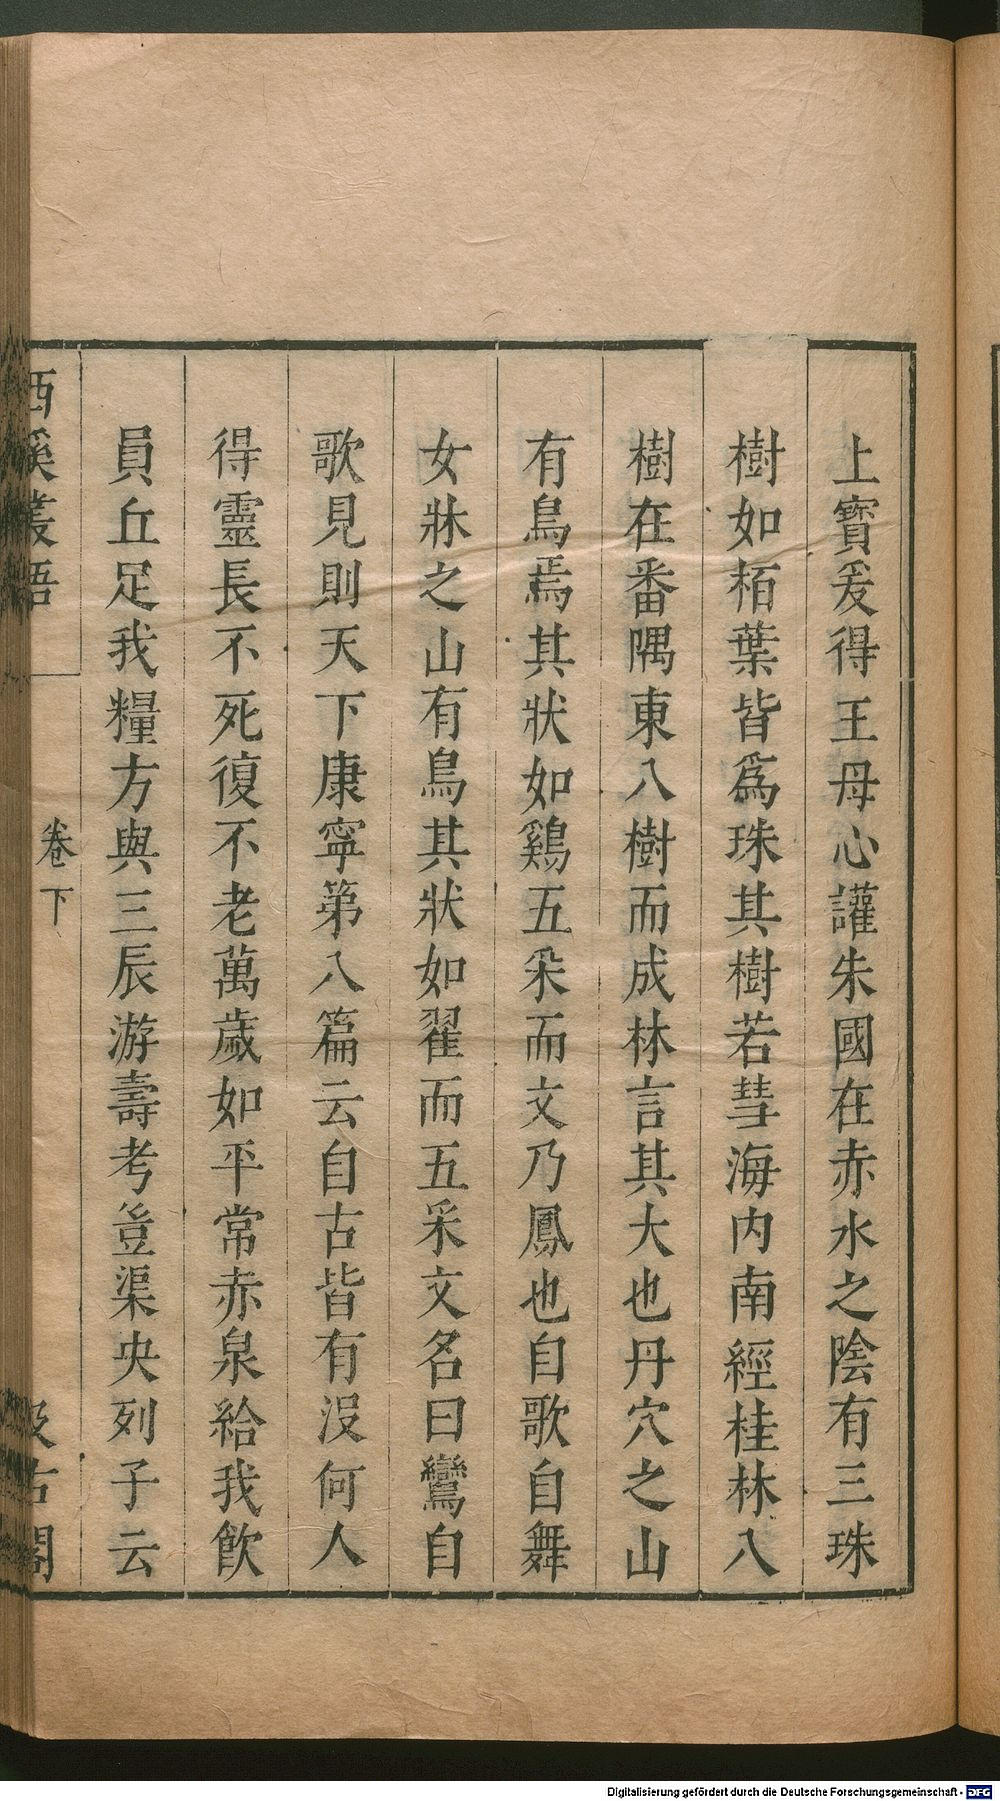 上寶爰得王母心讙朱國在赤水之陰有三珠
樹如栢葉皆爲珠其樹若彗海内南經桂林八
樹在番隅東八樹而成林言其大也丹穴之山
有鳥焉其狀如鷄五采而文乃鳳也自歌自舞
女牀之山有鳥其狀如翟而五采文名曰鸞自
歌見則天下康寧第八篇云自古皆有沒何人
得靈長不死復不老萬歲如平常赤泉給我飲
員丘足我糧方與三辰游壽考豈渠央列子云
西溪叢語
卷下
汲古閣
Digitalisierung gefördert durch die Deutsche Forschungsgemeinschaft - DFG